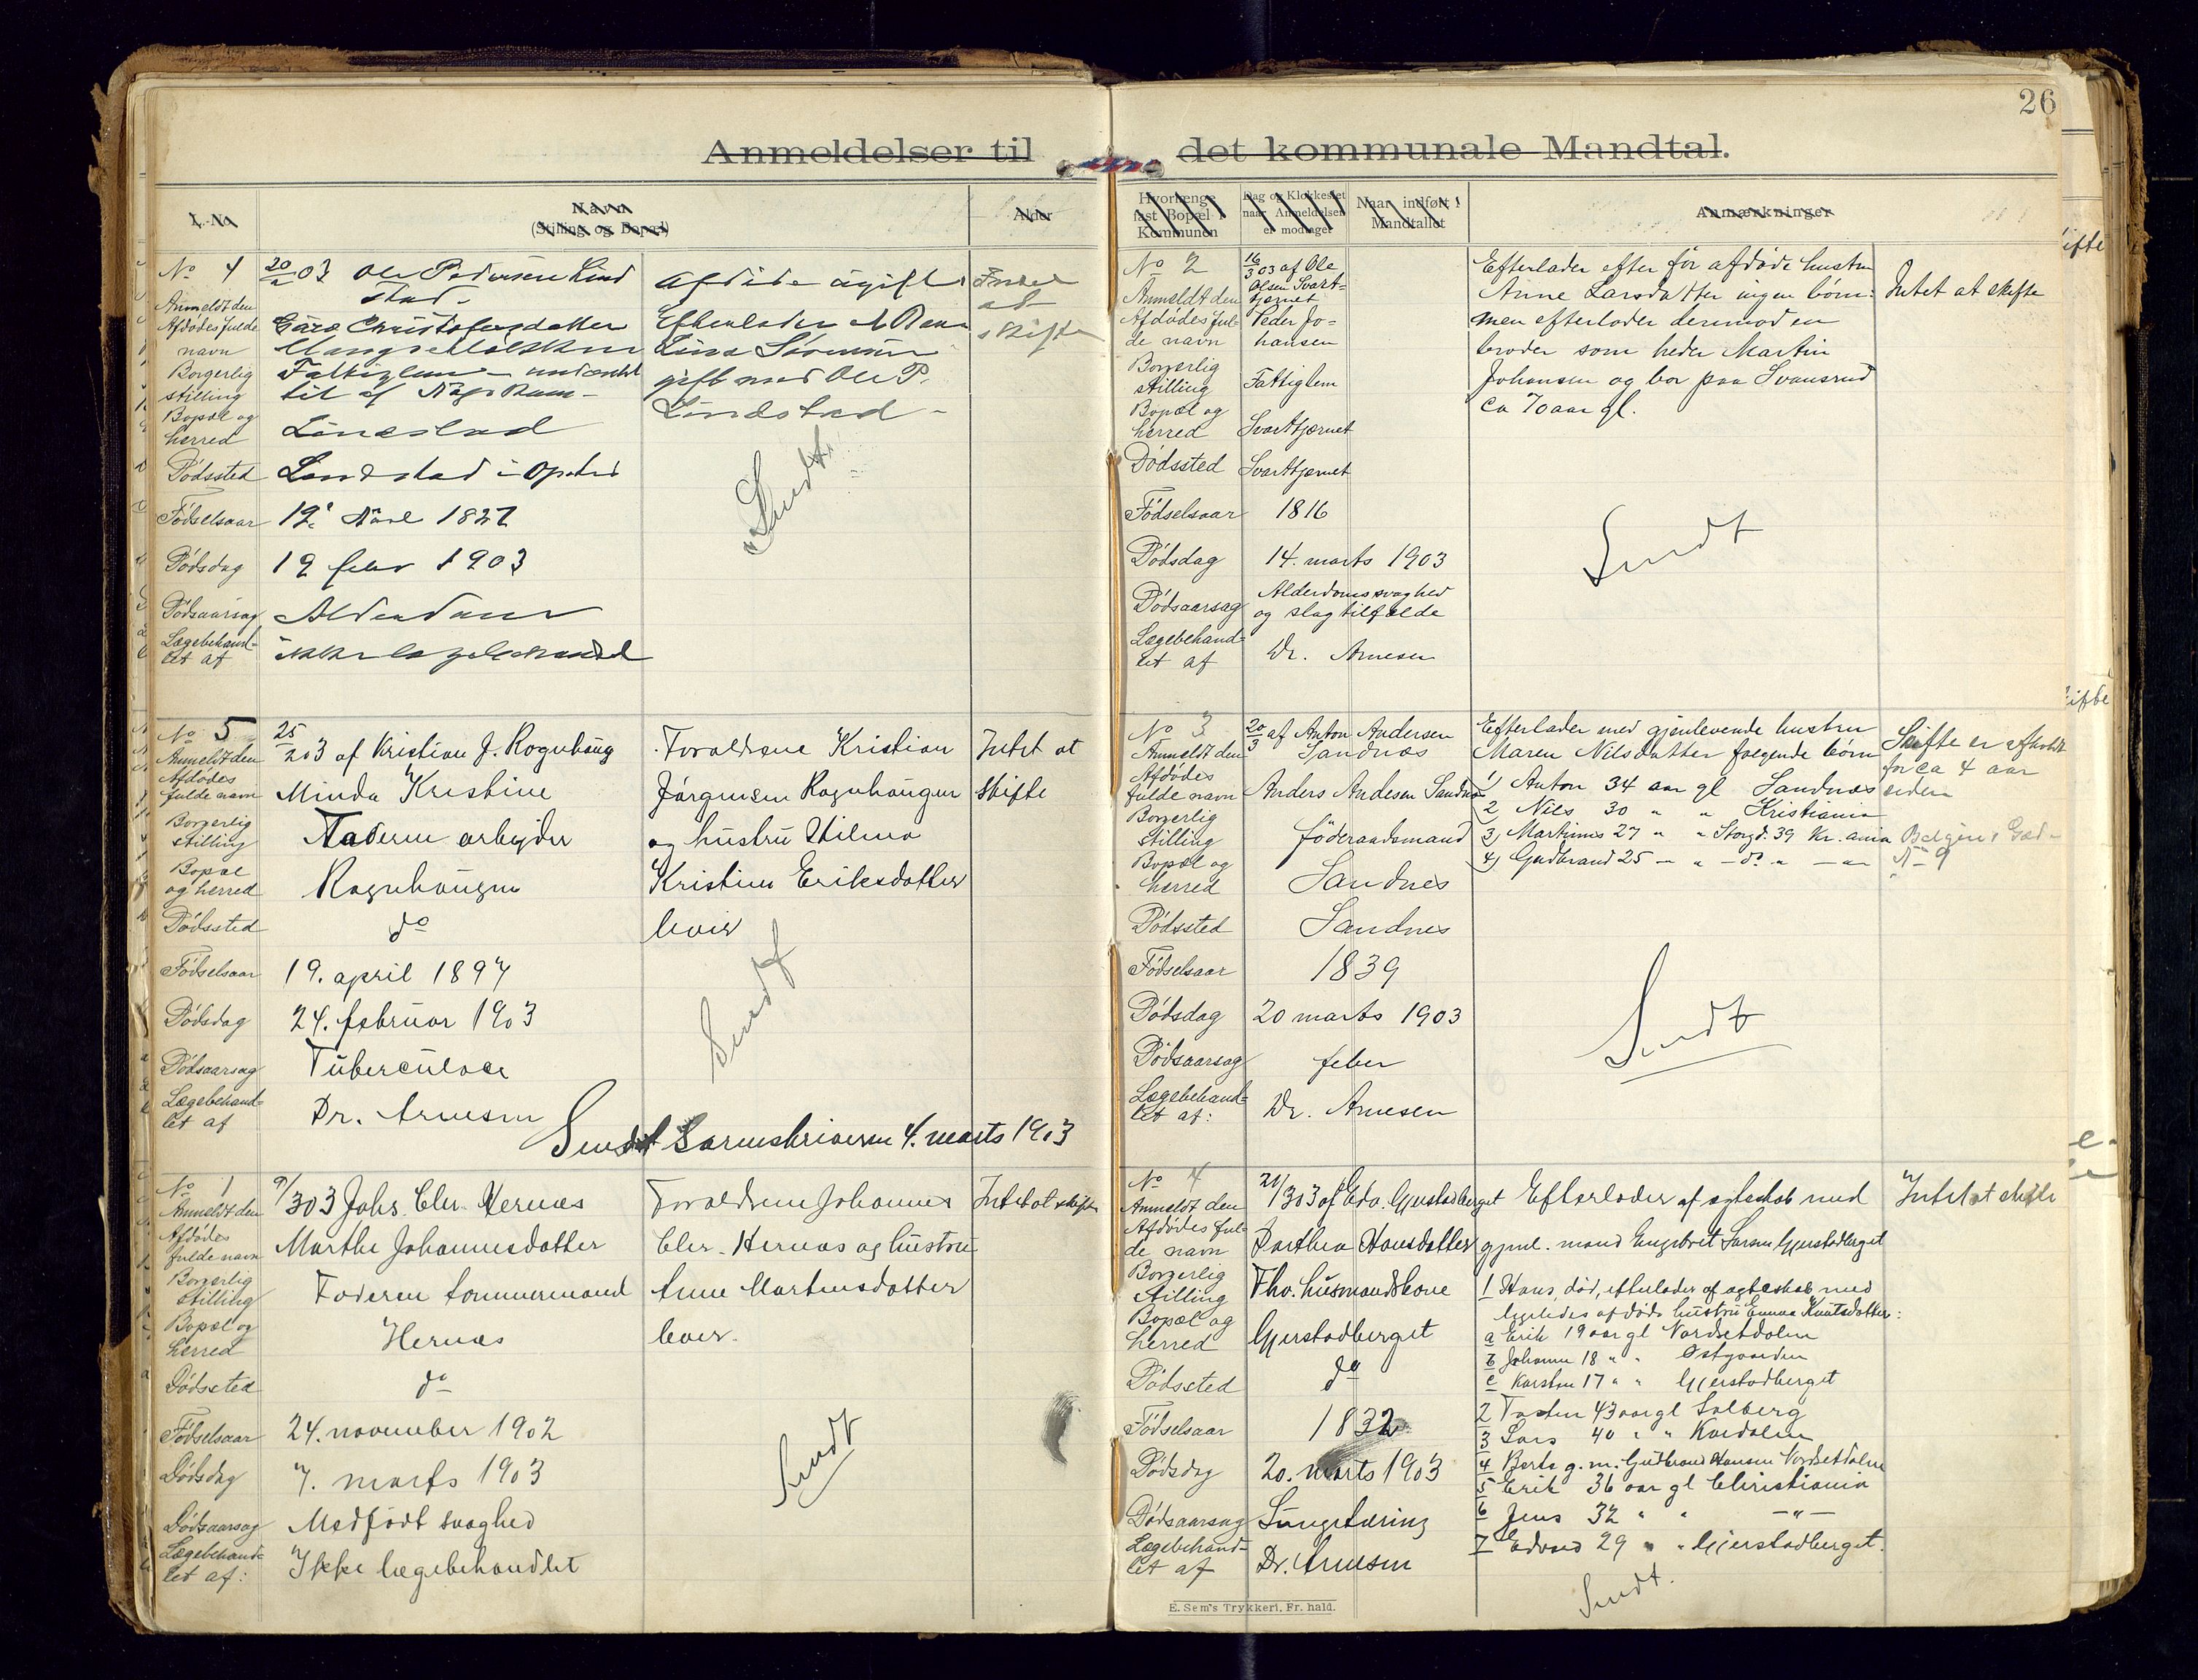 26
Anmeldelser til det kommunale Mandtal.
L. No
Navn
(Stilling og Bopæl)
Alder
No 4
20/2 03 Ole Pedersen Lind
stad
Anmeldt den
Afdødes fulde
navn
Borgerlig
stilling
Fattiglem
til af
Bopæl og
herred
Lindstad
Dødssted
Lindstad i Opstad
Fødselsaar
1827
Dødsdag
19 febr 1903
Dødsaarsag
Alderdom
Lægebehand=
let af
ikke lægebehandl
Afdøde ugift
Efterlader
gift med Ole P.
Lindstad
Intet
at
skifte
Sendt
No 5
25/2 03 af Kristian J. Rognhaug
Anmeldt den
Afdødes
fulde navn
Minda Kristine
Borgerlig
stilling
Faderen arbejder
Bopæl
og herred
Rognhaugen
Dødssted
do
Fødselsaar
19. april 1897
Dødsdag
24. februar 1903
Dødsaarsag
Tuberculose
Lægebehand=
let af
Dr. Arnesen
Forældrene Kristian
Jørgensen Rognhaugen
og hustru Hilma
Kristine Eriksdatter
lever
Intet at
skifte
Sendt
Sendt Sorenskriveren 4. marts 1903
No 1
9/3 03 Johs. Chr. Hernæs
Anmeldt den
Afdødes
fulde navn
Marthe Johannesdatter
Borgerlig
stilling
Faderen tømmermand
Bopæl og
herred
Hernæs
Dødssted
do
Fødselsaar
24. november 1902
Dødsdag
7. marts 1903
Dødsaarsag
Medfødt svaghed
Lægebehand=
let af:
Ikke lægebehandlet
Forældrene Johannes
Chr. Hernæs og hustru
Anne Martinsdatter
lever.
Intet at skifte
Sendt
Hvorlænge
fast Bopæl i
Kommunen
Dag og Klokkeslet
naar Anmeldelsen
er modtaget
Naar indført i
Mandtallet
Anmærkninger
No 2
16/3 03 af Ole
Olsen Svart=
tjernet
Anmeldt den
Afdødes ful=
de navn
Peder Jo=
hansen
Borgerlig
stilling
Fattiglem
Bopæl og
herred
Svarttjernet
Dødssted
Svarttjernet
Fødselsaar
1816
Dødsdag
14. marts 1903
Dødsaarsag
Alderdomssvaghed
og slagtilfælde
Lægebehand=
let af
Dr. Arnesen
Efterlader efter før afdøde hustru
Anne Larsdatter ingen børn:
men efterlader derimod en
broder som heder Martin
Johansen og bor paa Svansrud
ca 70 aar gl.
Intet at skifte
Sendt
No 3
20/3 af Anton Andersen
Sandnæs
Anmeldt den
Afdødes
fulde navn
Anders Andesen Sandnæs
Borgerlig
stilling
føderaadsmand
Bopæl og
herred
Sandnes
Dødssted
Sandnes
Fødselsaar
1839
Dødsdag
20 marts 1903
Dødsaarsag
feber
Lægebehand=
let af:
Dr. Arnesen
Efterlader med gjenlevende hustru
Maren Nilsdatter følgende børn
1) Anton 34 aar gl Sandnæs
2 Nils 30 " " Kristiania
3) Martinus 27 " " Storgd. 39 Kr. ania
4) Gudbrand 25 - " - do " - "
Skifte er afholdt
for ca 4 aar
siden
No 9
Sendt
No 4
21/3 03 af Edv. Gjerstadberget
Anmeldt den
Afdødes ful=
de navn
Dorthea Hansdatter
Borgerlig
stilling
Fhv. husmandskone
Bopæl og
herred
Gjerstadberget
Dødssted
do
Fødselsaar
1832
Dødsdag
20. marts 1903
Dødsaarsag
Lungetæring
Lægebehand=
let af
Dr. Arnesen
Efterlader af egteskab med
gjenl. mand Engebret Larsen Gjerstadberget
1 Hans, død, efterlader af egteskab med
ligeledes afdøde hustru Emma Knutsdatter:
a Erik 19 aar gl Nordsetdalen
b Johanne 18 " " Østgaarden
c Karsten 17 " " Gjerstadberget
2 Torsten 43 aar gl Solberg
3 Lars 40 " " Kardalen
4 Berte g. m. Gudbrand Hansen Nordsetdalen
5 Erik 36 aar gl Christiania
6 Jens 32 " " -"-
7 Edvard 29 " " Gjerstadberget.
Intet at skifte
Sendt.
E. Sem's Trykkeri, Fr. hald.